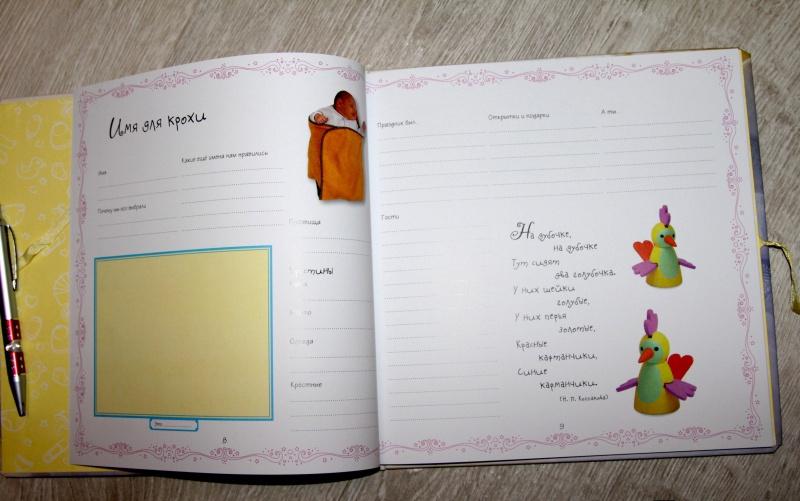 Имя для крохи
Имя
Какие ещё имена нам нравились
Почему мы его выбрали
Крестины
Место
Одежда
Крестные
Это
8
Праздник был...
Открытки и подарки
А ты...
Гости
На дубочке,
на дубочке
Тут сидят
два голубочка.
У них шейки
голубые,
У них перья
золотые,
Красные
кафтанчики,
Синие
карманчики.
9